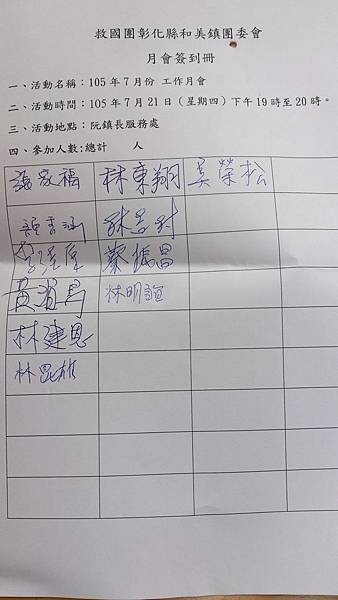 救國團彰化縣和美鎮團委會
月會簽到冊
一、活動名稱：105年7月份 工作月會
二、活動時間：105年7月21日（星期四）下午19時至20時。
三、活動地點：阮鎮長服務處
四、參加人數:總計　　人
張家福 林東翔 吳榮松
蔡振昌
林明誼
林建恩
林昆